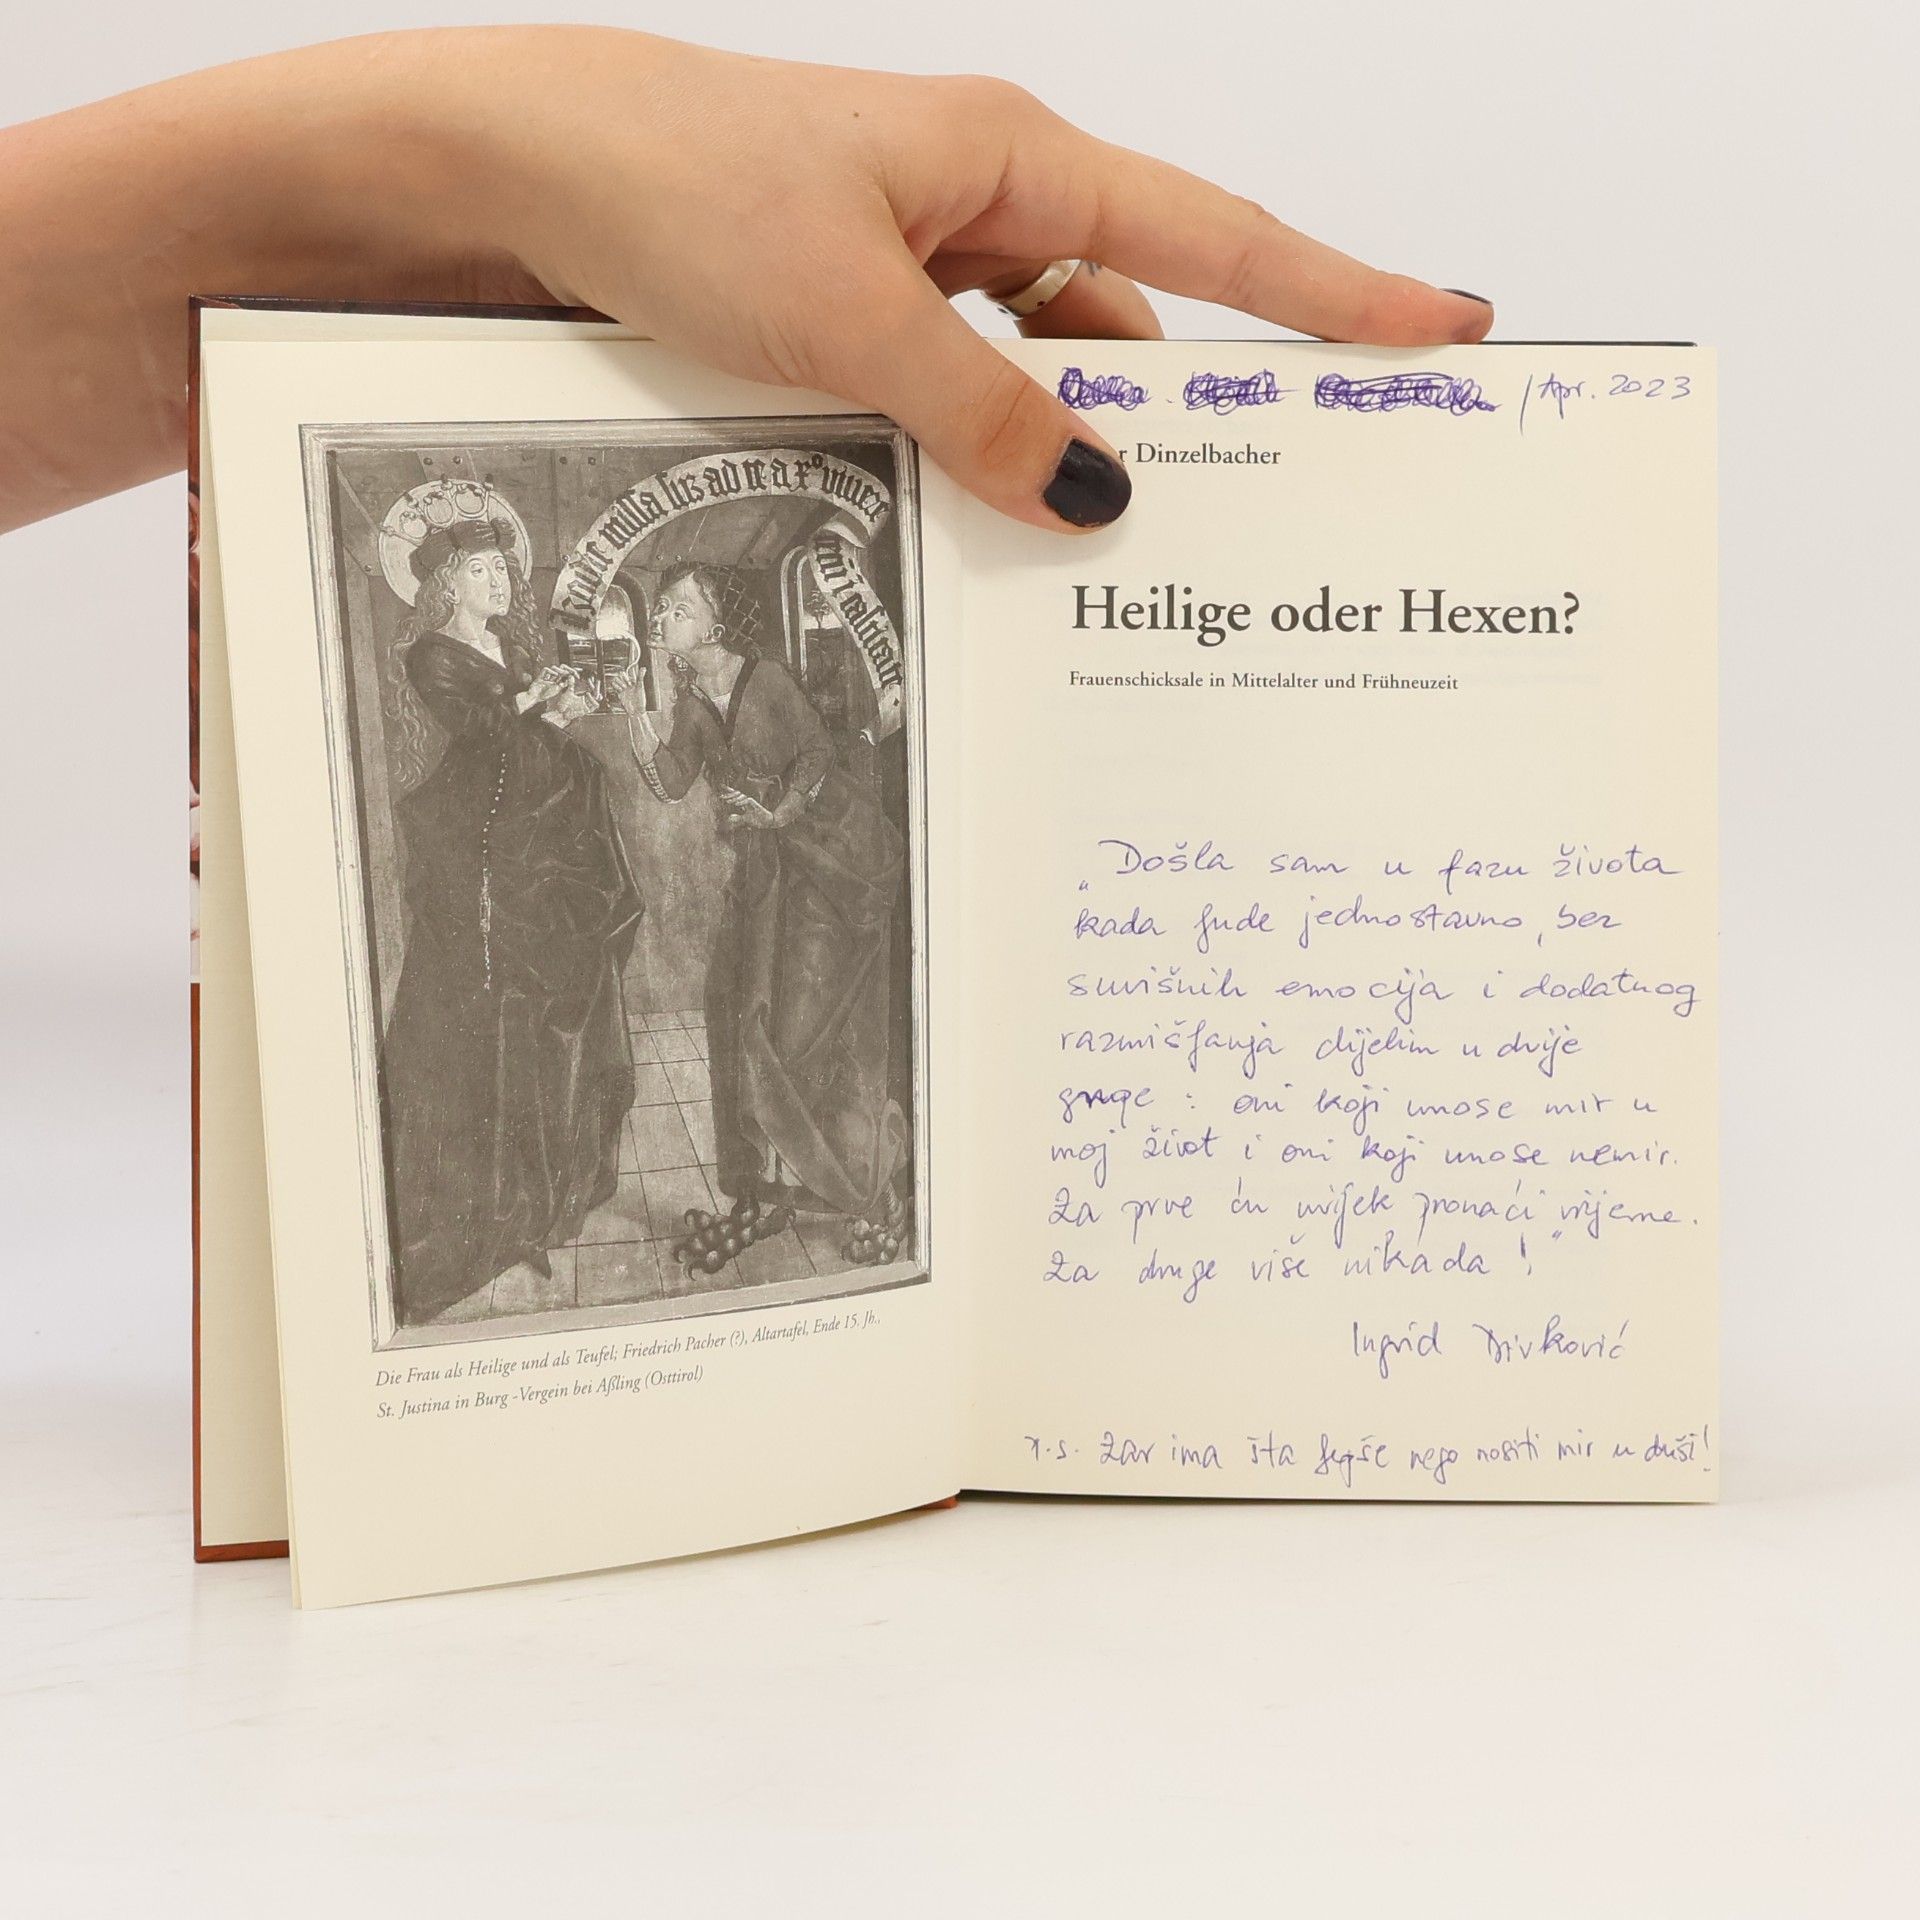 / Apr. 2023
r Dinzelbacher
Heilige oder Hexen?
Frauenschicksale in Mittelalter und Frühneuzeit
„Došla sam u fazu života
kada ljude jednostavno, bez
suvišnih emocija i dodatnog
razmišljanja dijelim u dvije
grupe : oni koji unose mir u
moj život i oni koji unose nemir.
Za prve ću uvijek pronaći vrijeme.
Za druge više nikada !“
Ingrid Divković
P.S. Zar ima šta ljepše nego nositi mir u duši!
Die Frau als Heilige und als Teufel; Friedrich Pacher (?), Altartafel, Ende 15. Jh.,
St. Justina in Burg -Vergein bei Aßling (Osttirol)